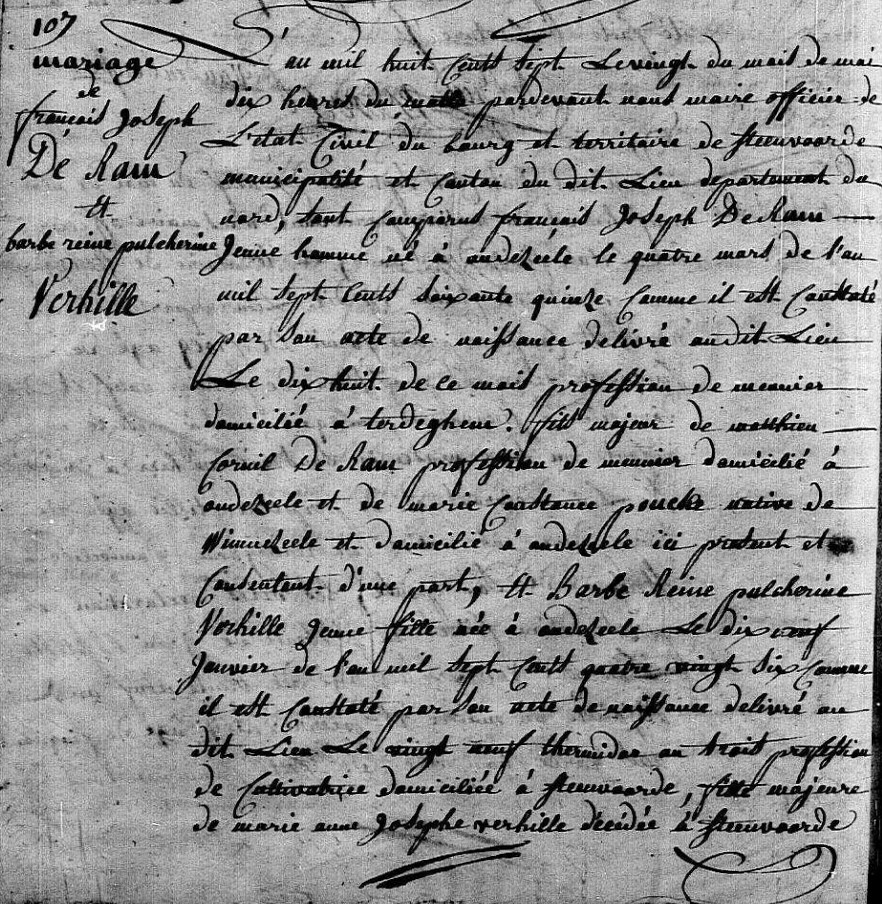 107
mariage
de
francois Joseph
De Ram
et
barbe reine pulcherine
Verhille
L'an mil huit Cents sept Le vingt du mois de mai
dix heures du matin pardevant nous maire officier de
L'etat Civil du bourg et territoire de Steenvoorde
municipalité et Canton du dit Lieu departement du
nord, sont Comparus francois Joseph De Ram
Jeune homme né à oudezeele le quatre mars de l'an
mil sept Cents soixante quinze Comme il est Constaté
par son acte de naissance delivré audit Lieu
Le dix huit de ce mois profession de meunier
domicilié à terdeghem. fils majeur de matthieu
Cornil De Ram profession de meunier domicilié à
oudezeele et de marie Constance pouchs native de
Winnezeele et domicilié à oudezeele ici present et
Consentent d'une part, et Barbe Reine pulcherine
Verhille Jeune fille née à oudezeele Le dix neuf
Janvier de l'an mil sept Cents quatre vingt six Comme
il est Constaté par son acte de naissance delivré au
dit Lieu Le vingt neuf thermidor an trois profession
de Cultivatrice domiciliée à Steenvoorde, fille majeure
de marie anne Josephe verhille décédée à Steenvoorde